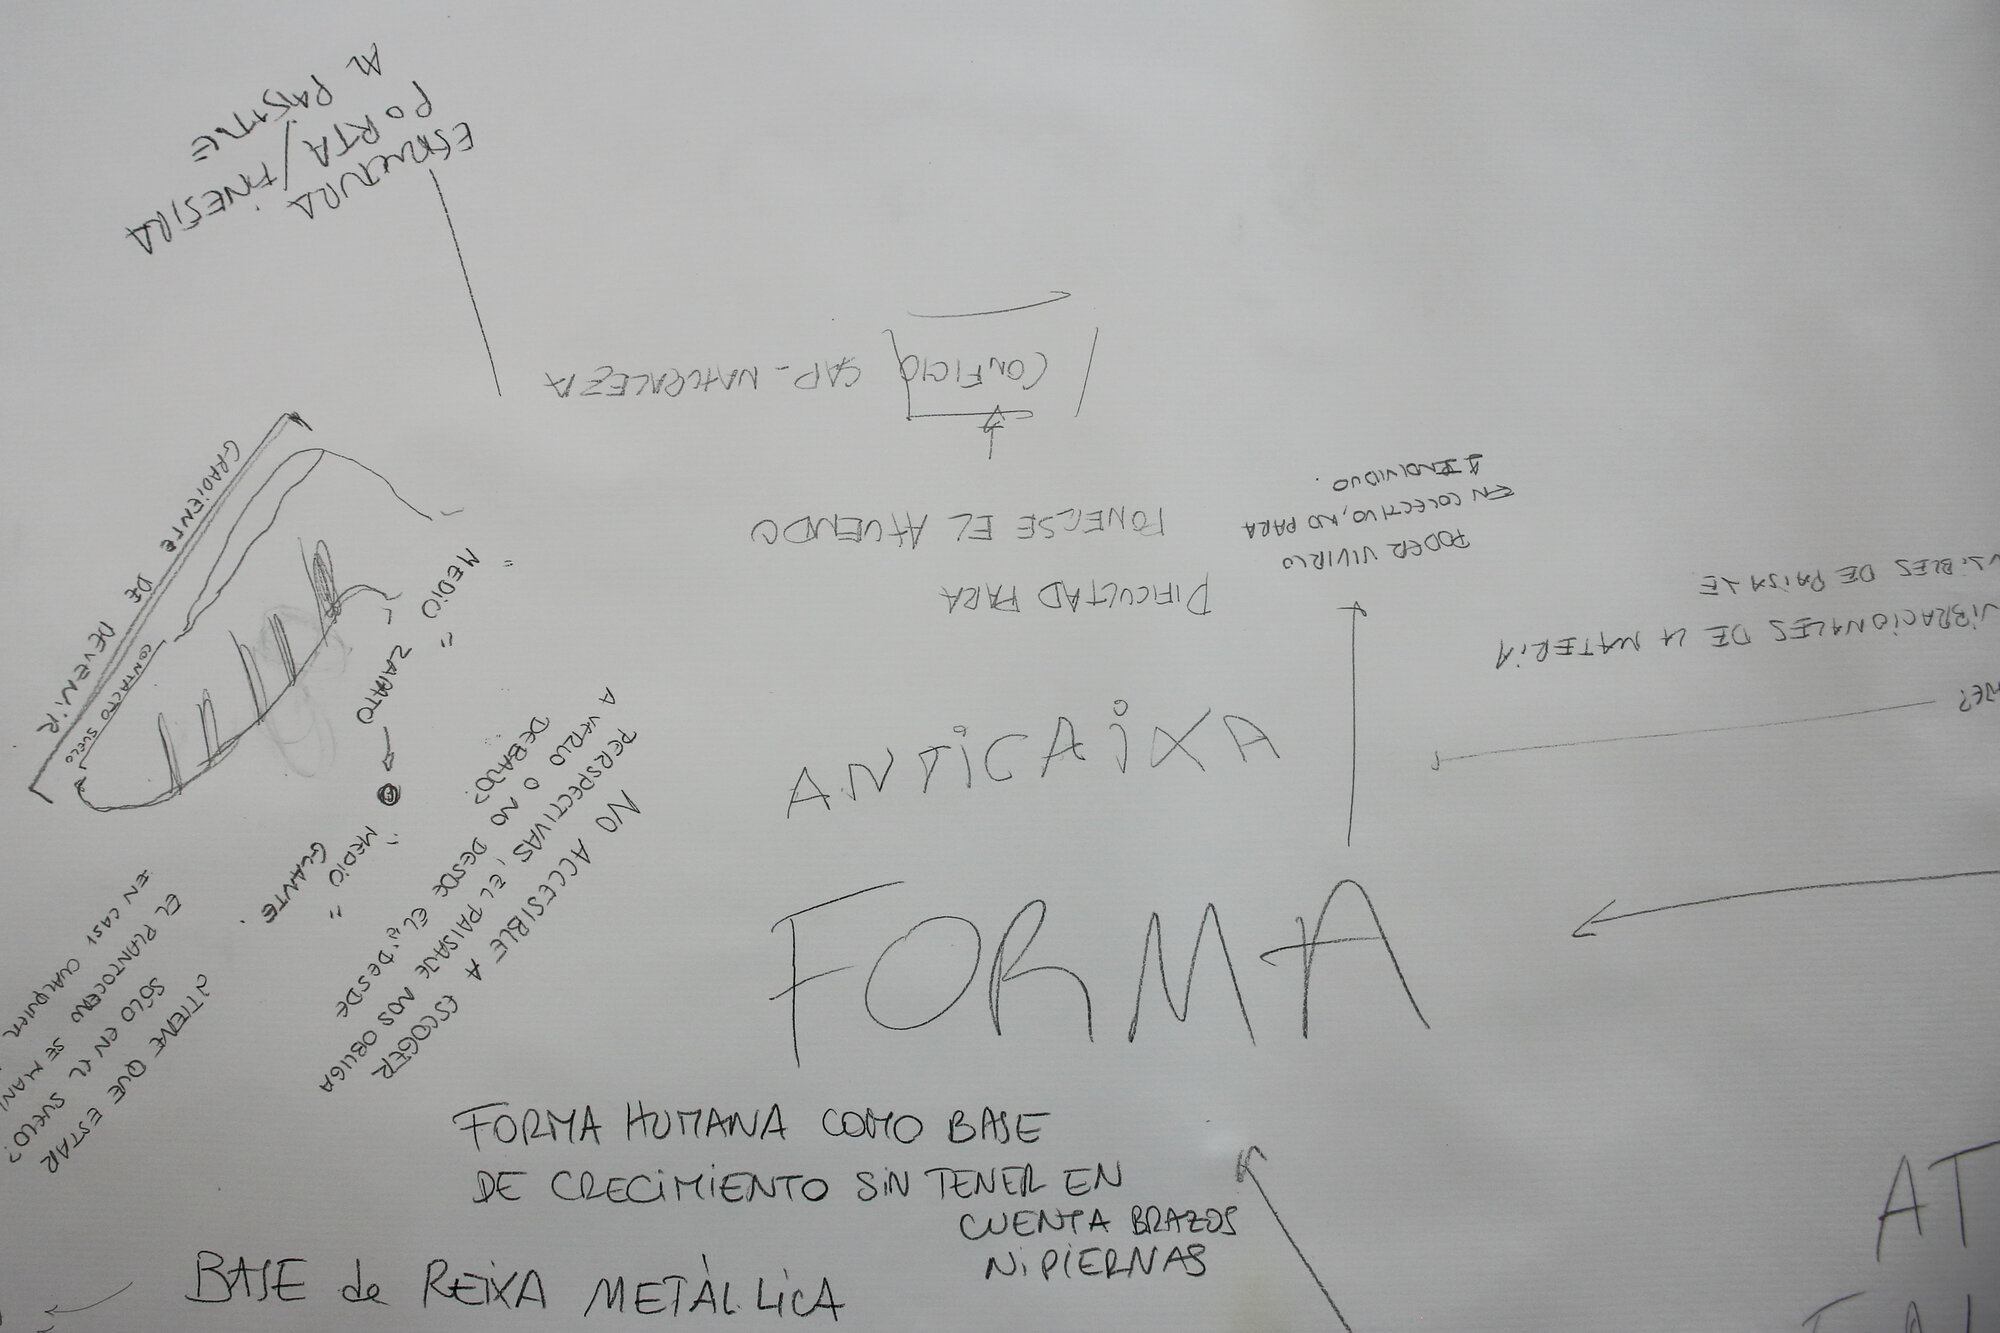 ESTRUCTURA
PORTA / FINESTRA
AL PAISATGE
CONFICIÓ CAP - NATURALEZA
DIFICULTAD PARA
PONERSE EL ATUENDO
PODER VIVIRLO
EN COLECTIVO, NO PARA
1 INDIVIDUO.
VIBRACIONALES DE LA MATERIA
DE PAISAJE
GRADIENTE DE DEVENIR
CONTACTO SUELO
"MEDIO" ZAPATO
"MEDIO"
GUANTE
NO ACCESIBLE A ESCOGER
PERSPECTIVAS, EL PAISAJE NOS OBLIGA
A VERLO O NO DESDE EL "DESDE
DEBAJO?
¿TIENE QUE ESTAR
SÓLO EN EL SUELO?
EL PLANTOCENO SE MANI
EN CASI CUALQUIER
ANTICAIXA
FORMA
FORMA HUMANA COMO BASE
DE CRECIMIENTO SIN TENER EN
CUENTA BRAZOS
NI PIERNAS
BASE de REIXA METÀL.LICA
AT